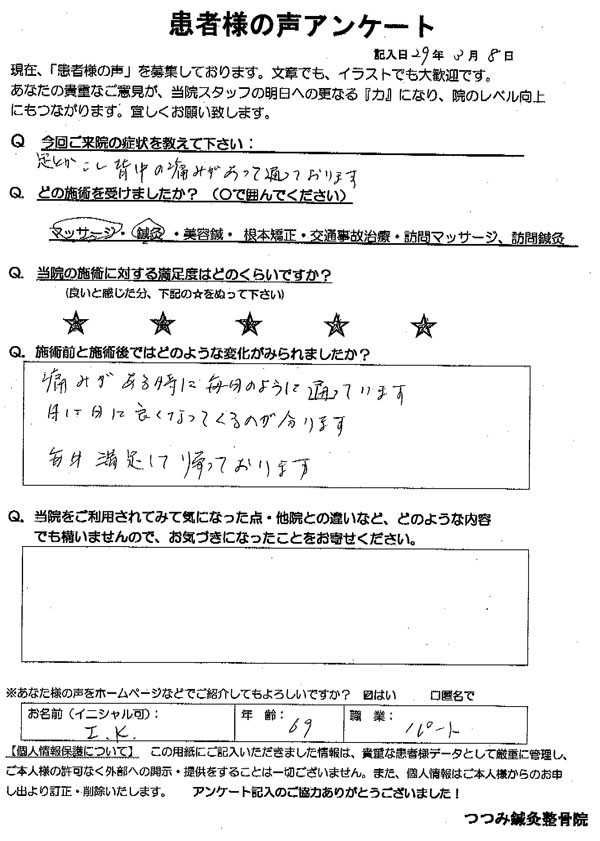 患者様の声アンケート
記入日29年 3月 8日
現在、「患者様の声」を募集しております。文章でも、イラストでも大歓迎です。
あなたの貴重なご意見が、当院スタッフの明日への更なる『力』になり、院のレベル向上
にもつながります。宜しくお願い致します。
Q 今回ご来院の症状を教えて下さい：
足とかこし背中の痛みがあって通っております
Q. どの施術を受けましたか？（〇で囲んでください）
マッサージ・鍼灸・美容鍼・根本矯正・交通事故治療・訪問マッサージ、訪問鍼灸
Q. 当院の施術に対する満足度はどのくらいですか？
(良いと感じた分、下記の☆をぬって下さい)
★ ★ ★ ★ ★
Q. 施術前と施術後ではどのような変化がみられましたか？
痛みがある時に毎日のように通っています
日に日に良くなってくるのが分ります
毎日満足して帰っております
Q. 当院をご利用されてみて気になった点・他院との違いなど、どのような内容
でも構いませんので、お気づきになったことをお寄せください。
※あなた様の声をホームページなどでご紹介してもよろしいですか？ ☑はい □匿名で
お名前（イニシャル可）： I.K. 年 齢： 69 職 業： パート
【個人情報保護について】 この用紙にご記入いただきました情報は、貴重な患者様データとして厳重に管理し、
ご本人様の許可なく外部への開示・提供をすることは一切ございません。また、個人情報はご本人様からのお申
し出より訂正・削除いたします。 アンケート記入のご協力ありがとうございました！
つつみ鍼灸整骨院